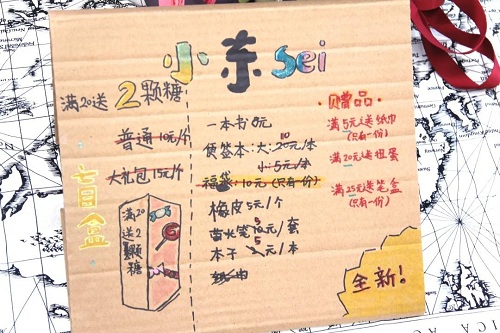 小东sei
满20送2颗糖
普通10元/个
大礼包15元/个
盲盒
满20送2颗糖
一本书8元
便签本:大:20元/本
10
小:5元/本
福袋:10元(只有一份)
橡皮5元/个
荧光笔10元/套
本子 元/本
5
赠品
满5元送纸巾
(只有一份)
满20元送扭蛋
满25元送笔盒
(只有一份)
全新!